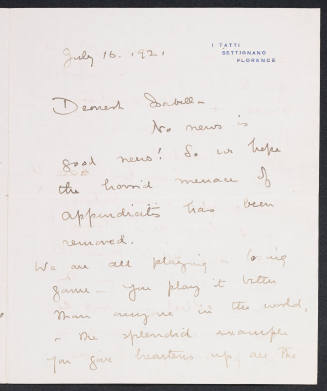 I TATTI
SETTIGNANO
FLORENCE
July 16. 1921
Dearest Isabella
No news is
good news! So we hope
the horrid menace of
appendicitis has been
removed.
We are all playing a losing
game - you play it better
than anyone in the world,
& the splendid example
you give heartens up all the